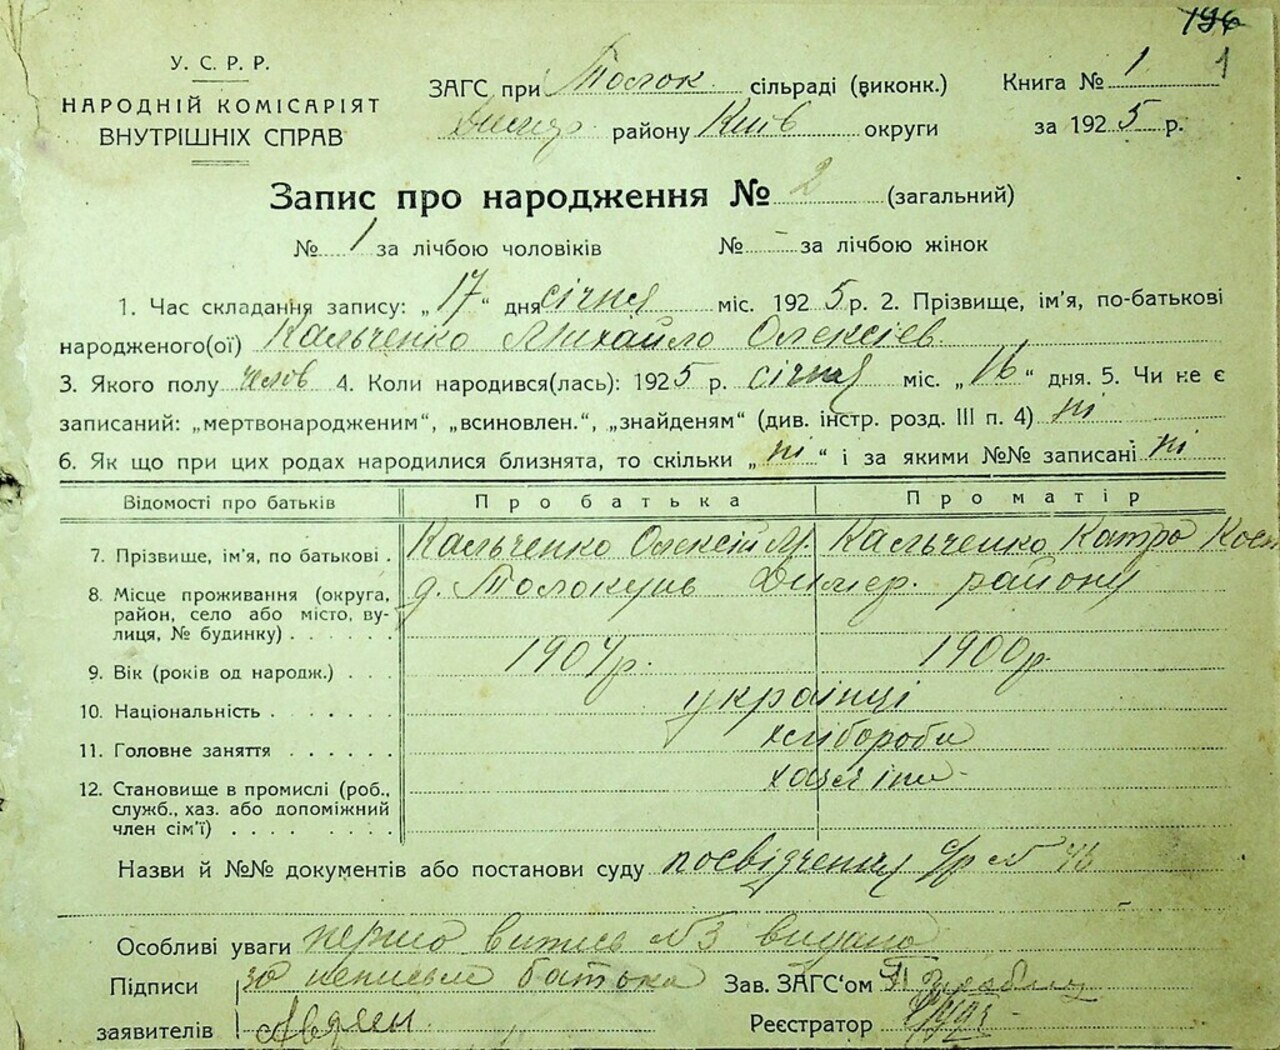 196
1
У. С. Р. Р.
НАРОДНІЙ КОМІСАРІЯТ
ВНУТРІШНІХ СПРАВ
ЗАГС при Толок сільраді (виконк.)
Димер району Київ округи
Книга № 1
за 1925 р.
Запис про народження № 2 (загальний)
№ 1 за лічбою чоловіків № - за лічбою жінок
1. Час складання запису: „17“ дня січня міс. 1925 р. 2. Прізвище, ім’я, по-батькові
народженого(ої) Кальченко Михайло Олексієв.
3. Якого полу челов 4. Коли народився(лась): 1925 р. січня міс. „16“ дня. 5. Чи не є
записаний: „мертвонародженим“, „всиновлен.“, „знайденям“ (див. інстр. розд. III п. 4) ні
6. Як що при цих родах народилися близнята, то скільки „ні“ і за якими №№ записані ні
Відомості про батьків Про батька Про матір
7. Прізвище, ім’я, по батькові . Кальченко Олексій М. Кальченко Катря Кост
8. Місце проживання (округа, район, село або місто, ву-
лиця, № будинку) . . . . . . д. Толокунь Димер. району
9. Вік (років од народж.) . . . 1904р. 1900р.
10. Національність . . . . . . . українці
11. Головне заняття . . . . . . хлібороби
12. Становище в промислі (роб.,
служб., хаз. або допоміжний
член сім’ї) . . . . . . . . хазяїни
Назви й №№ документів або постанови суду посвідчення с/р №
Особливі уваги перша випись №3 видана
Підписи за неписьм батька Зав. ЗАГС‘ом
заявителів Реєстратор